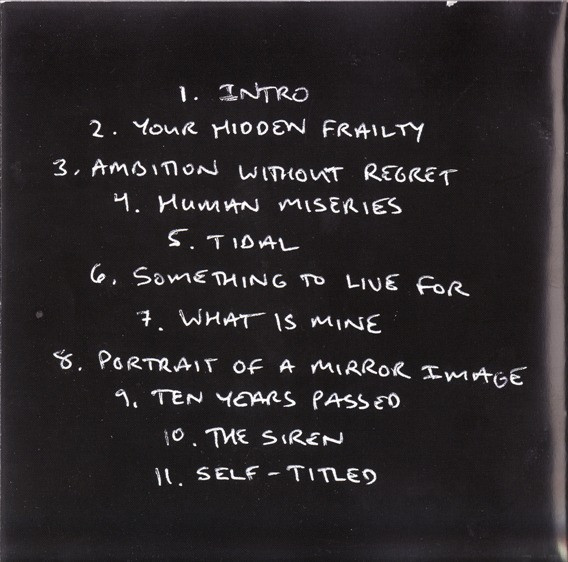 1. INTRO
2. YOUR HIDDEN FRAILTY
3. AMBITION WITHOUT REGRET
4. HUMAN MISERIES
5. TIDAL
6. SOMETHING TO LIVE FOR
7. WHAT IS MINE
8. PORTRAIT OF A MIRROR IMAGE
9. TEN YEARS PASSED
10. THE SIREN
11. SELF-TITLED